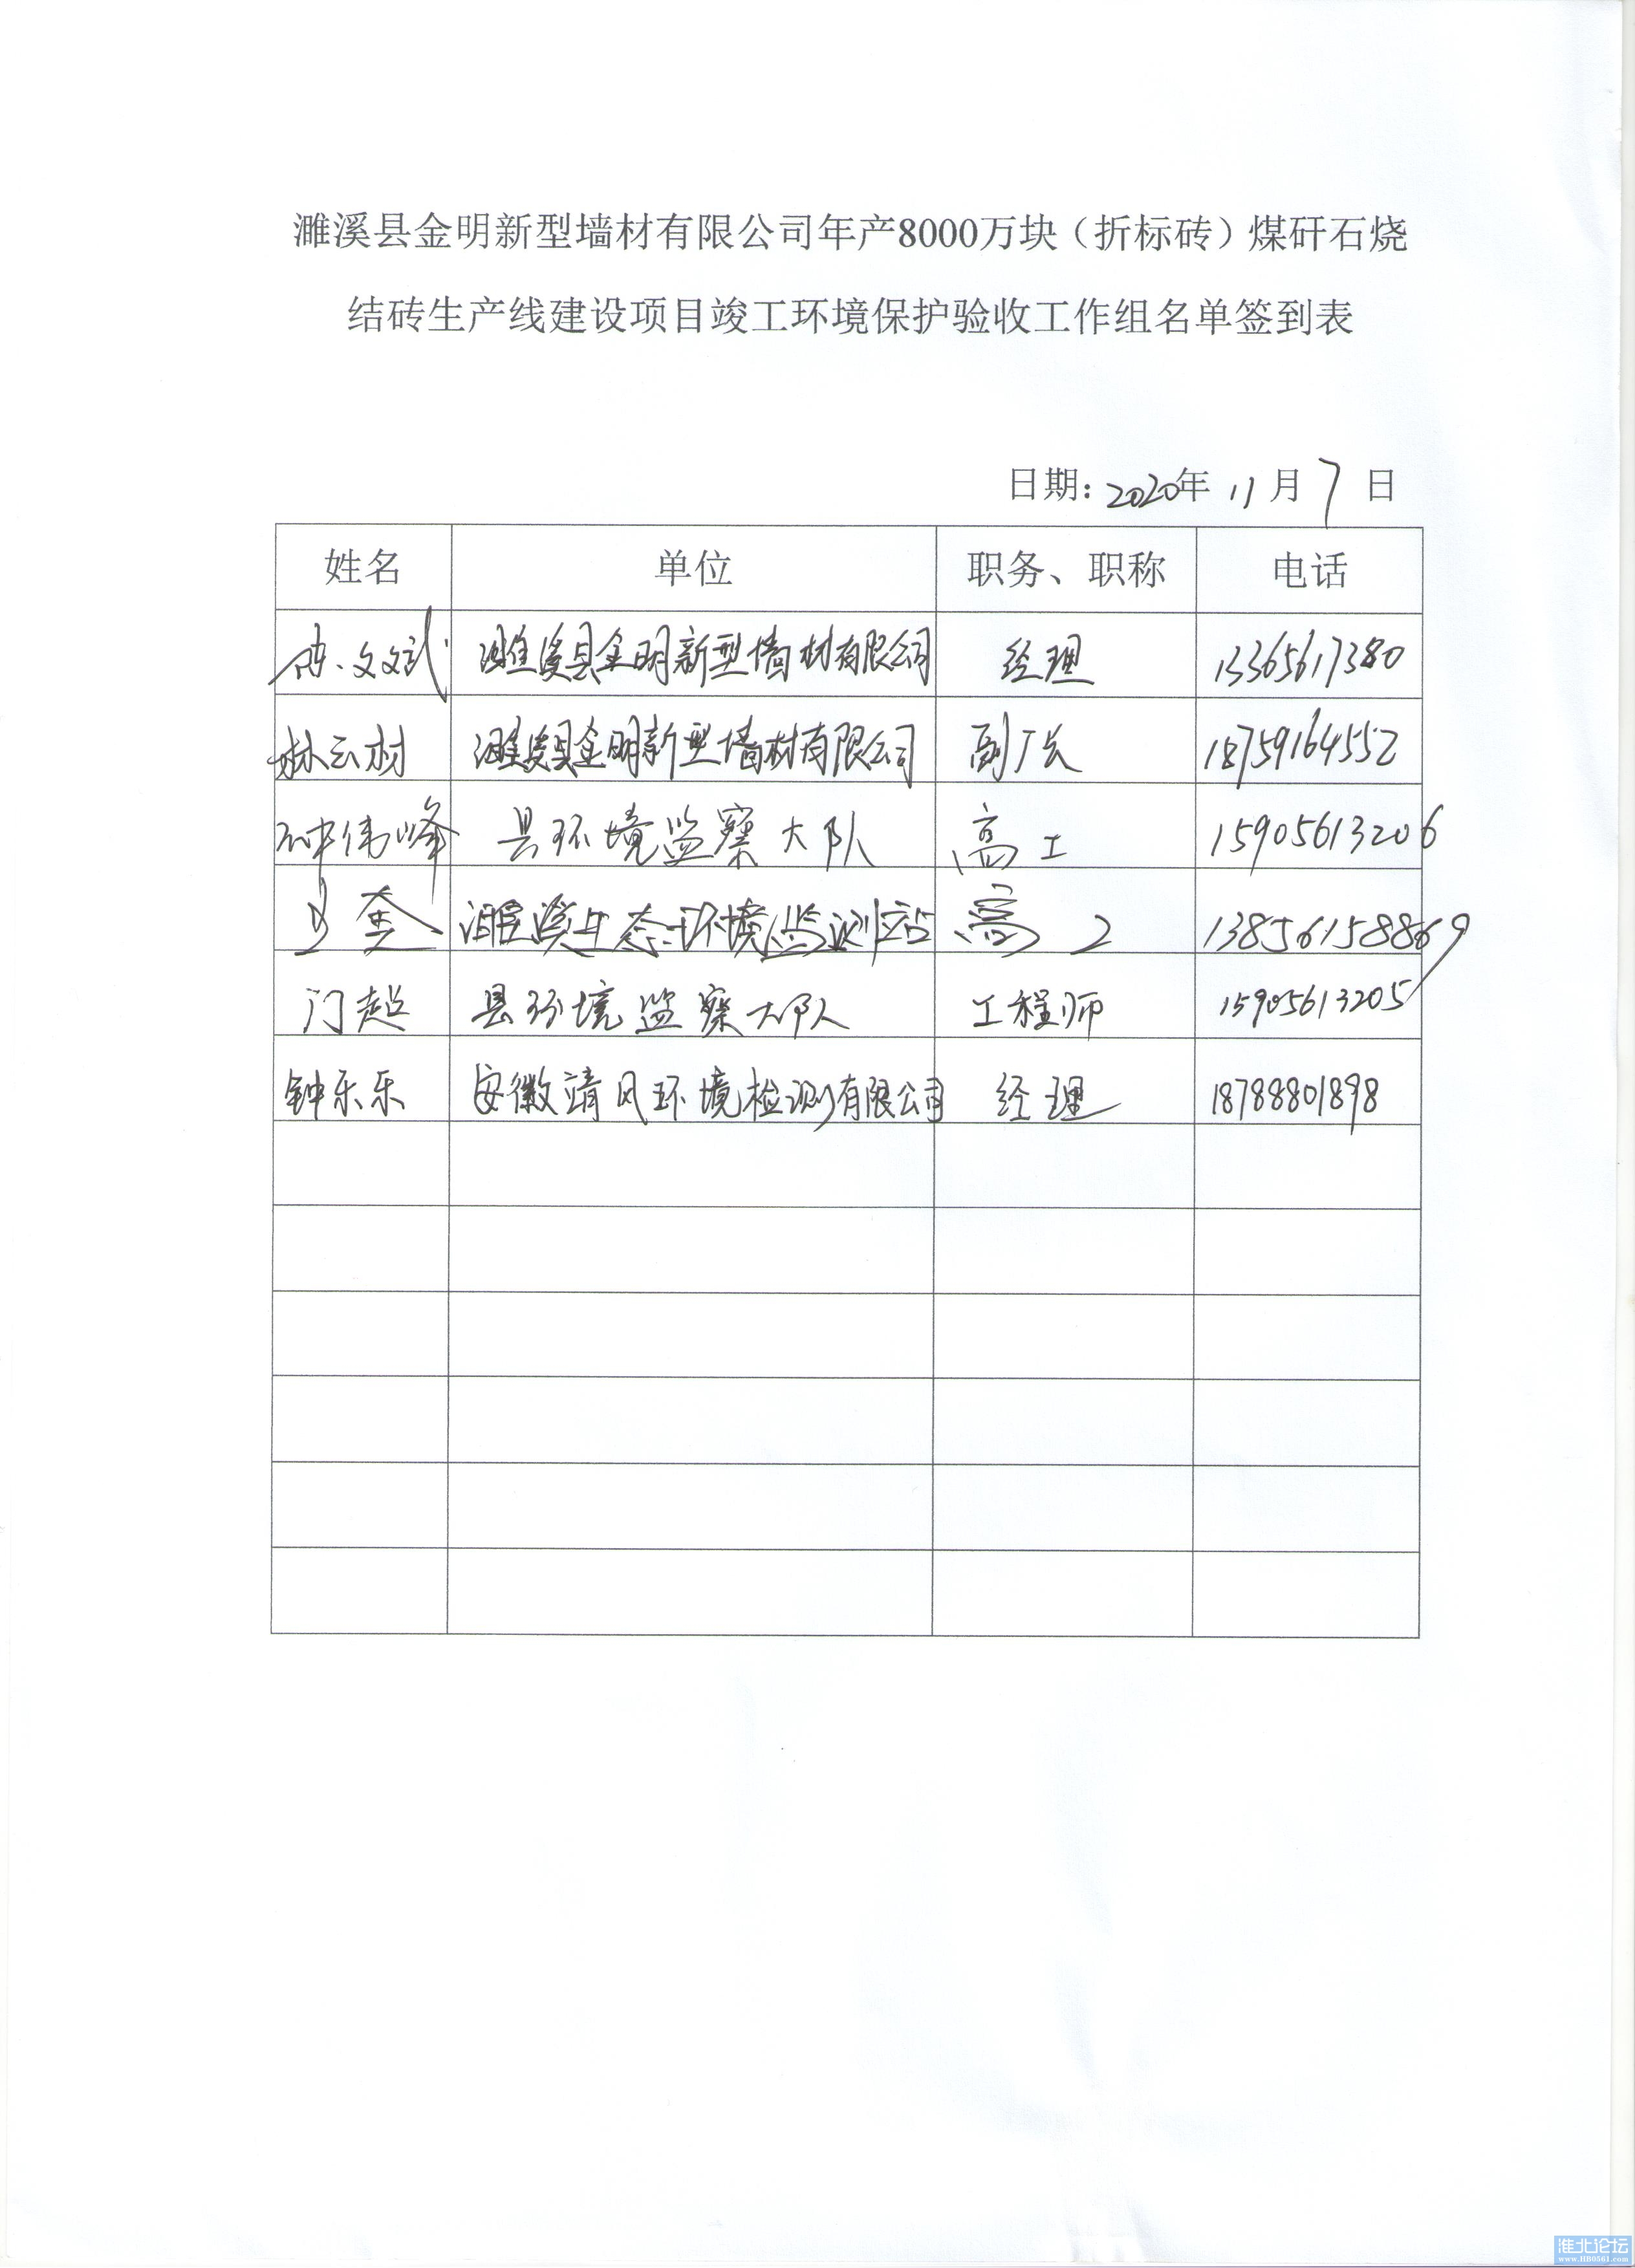 濉溪县金明新型墙材有限公司年产8000万块（折标砖）煤矸石烧
结砖生产线建设项目竣工环境保护验收工作组名单签到表
日期：2020年 11 月 7 日
姓名 单位 职务、职称 电话
濉溪县金明新型墙材有限公司 经理 13365617380
林云材 濉溪县金明新型墙材有限公司 副厂长 18759164552
钟伟峰 县环境监察大队 高工 15905613206
濉溪生态环境监测站 高工 13856158869
门超 县环境监察大队 工程师 15905613205
钟乐乐 安徽靖风环境检测有限公司 经理 18788801898
淮北论坛
www.HB0561.com